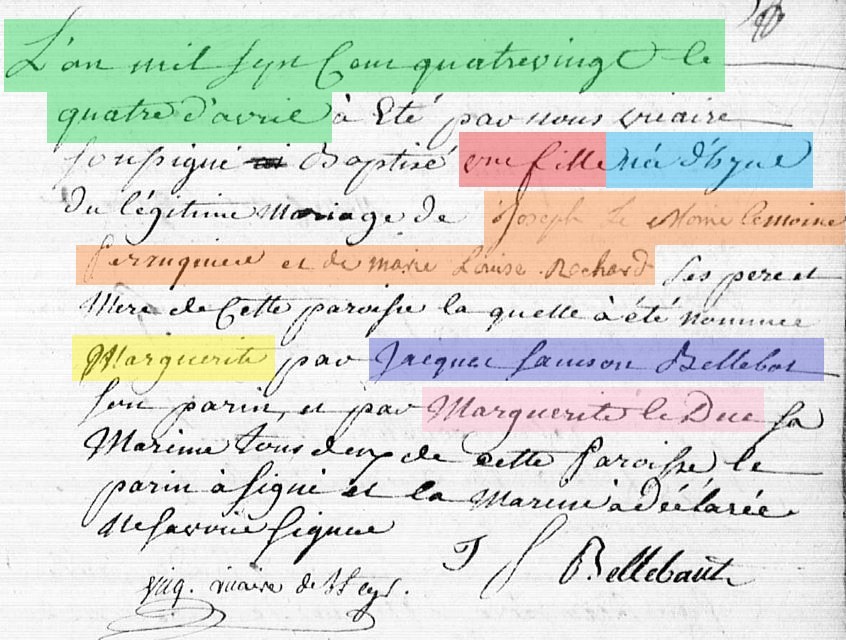 L'an mil sept Cent quatrevingt le
quatre d'avril à Eté par nous vicaire
sousigné Baptisé une fille née d'hyer
du légitime Mariage de Joseph Le Moine lemoine
Perruquier et de marie Louise Rechard ses pere et
Mere de Cette paroisse la quelle à été nommee
Marguerite par Jacques Samson Bellebot
son parin, et par Marguerite le Duc sa
Marine tous deux de cette Paroisse le
parin à signé et la Marine à déclarée
ne savoir signer
J S Bellebaut
vicaire de